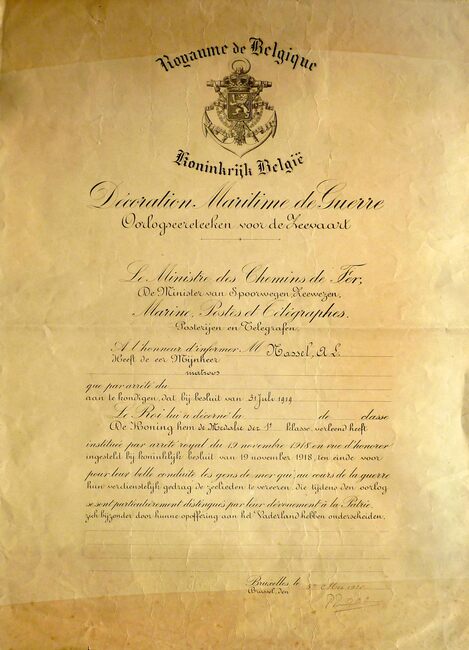 Royaume de Belgique
Koninkrijk België
Décoration Maritime de Guerre
Oorlogseereteeken voor de Zeevaart
Le Ministre des Chemins de Fer,
(De Minister van Spoorwegen, Zeewezen,
Marine, Postes et Télégraphes.
Posterijen en Telegrafen,
A l'honneur d'informer M Nassel, A L.
Heeft de eer Mijnheer
matroos
que par arrêté du
aan te kondigen, dat bij besluit van 31 Juli 1919
Le Roi lui a décerné la de classe
(De Koning hem de Medalie der 1e klasse verleend heeft
instituée par arrêté royal du 19 novembre 1918 en vue d'honorer
ingesteld bij koninklijk besluit van 19 november 1918, ten einde voor
pour leur belle conduite les gens de mer qui, au cours de la guerre
hun verdienstelijk gedrag de zeelieden te vereeren, die tijdens den oorlog
se sont particulièrement distingués par leur dévouement à la Patrie.
zich bijzonder door hunne opoffering aan het Vaderland hebben onderscheiden.
Bruxelles, le
Brussel, den 1920